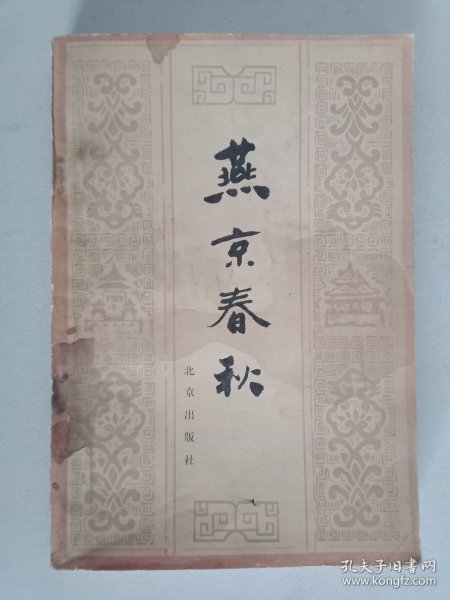 燕京春秋
北京出版社
孔夫子旧书网
www.kongfz.com